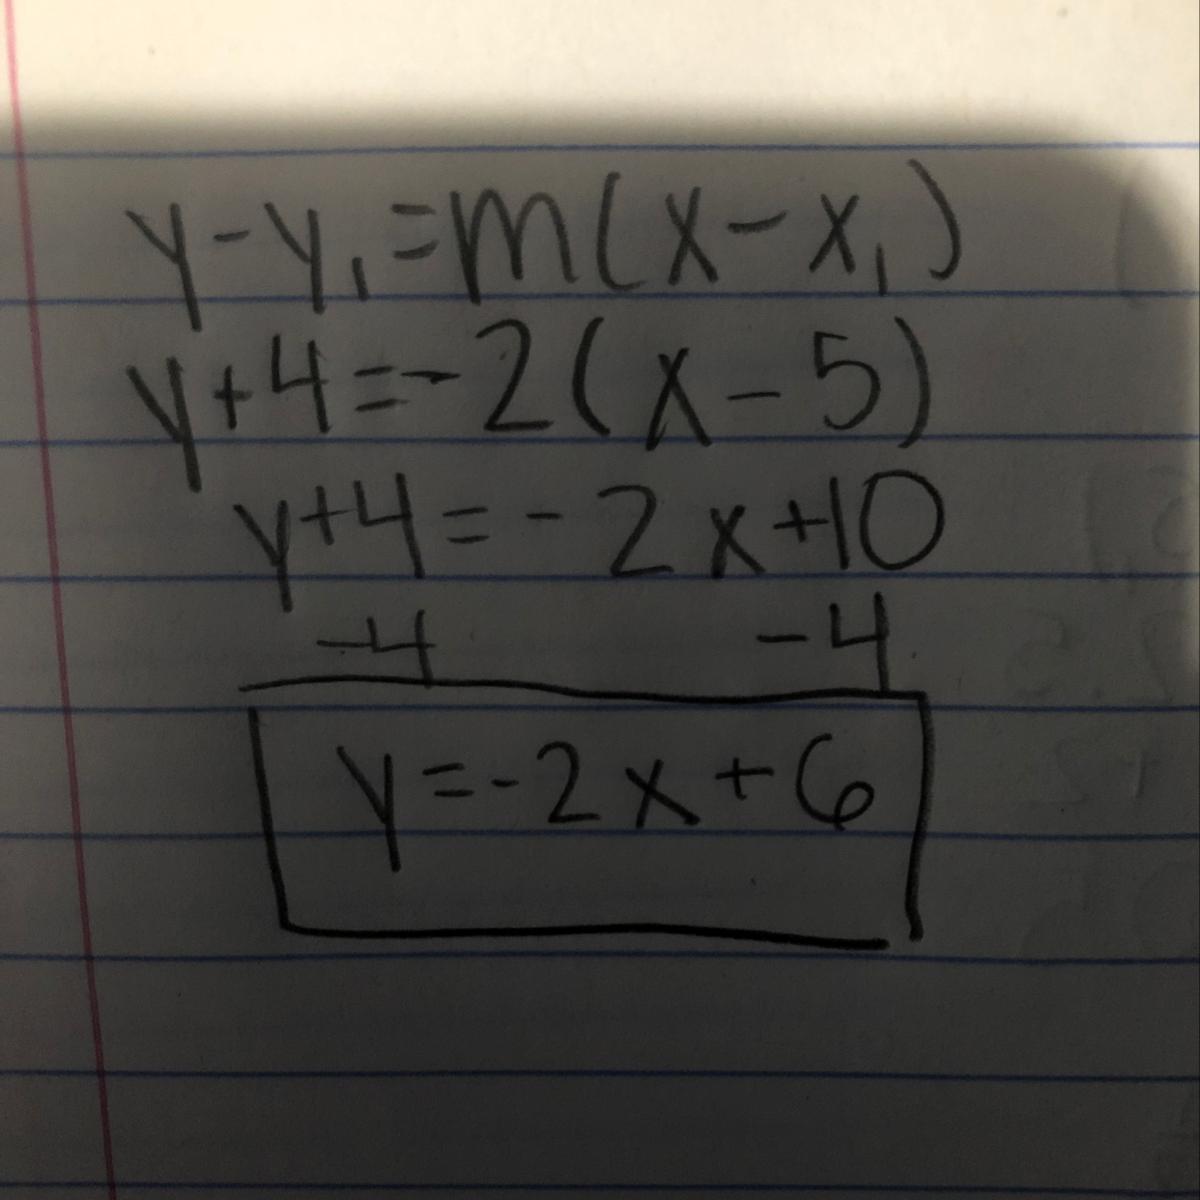 y-y₁=m(x-x₁)
y+4=-2(x-5)
y+4=-2x+10
-4 -4
y=-2x+6